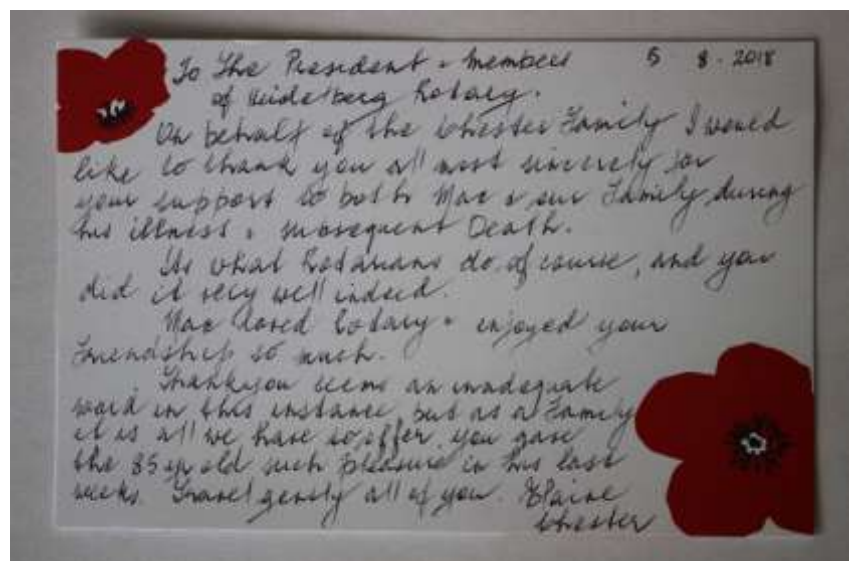 To The President & Members 5 8 . 2018
of Heidelberg Rotary.
On behalf of the Chester Family I would
like to thank you all most sincerely for
your support to both Mac & our Family during
his illness & subsequent Death.
Its what Rotarians do, of course, and you
did it very well indeed.
Mac loved Rotary & enjoyed your
Friendship so much.
Thankyou seems an inadequate
word in this instance, but as a Family
it is all we have to offer, you gave
the 85 yr old such pleasure in his last
weeks. Travel gently all of you. Elaine
Chester